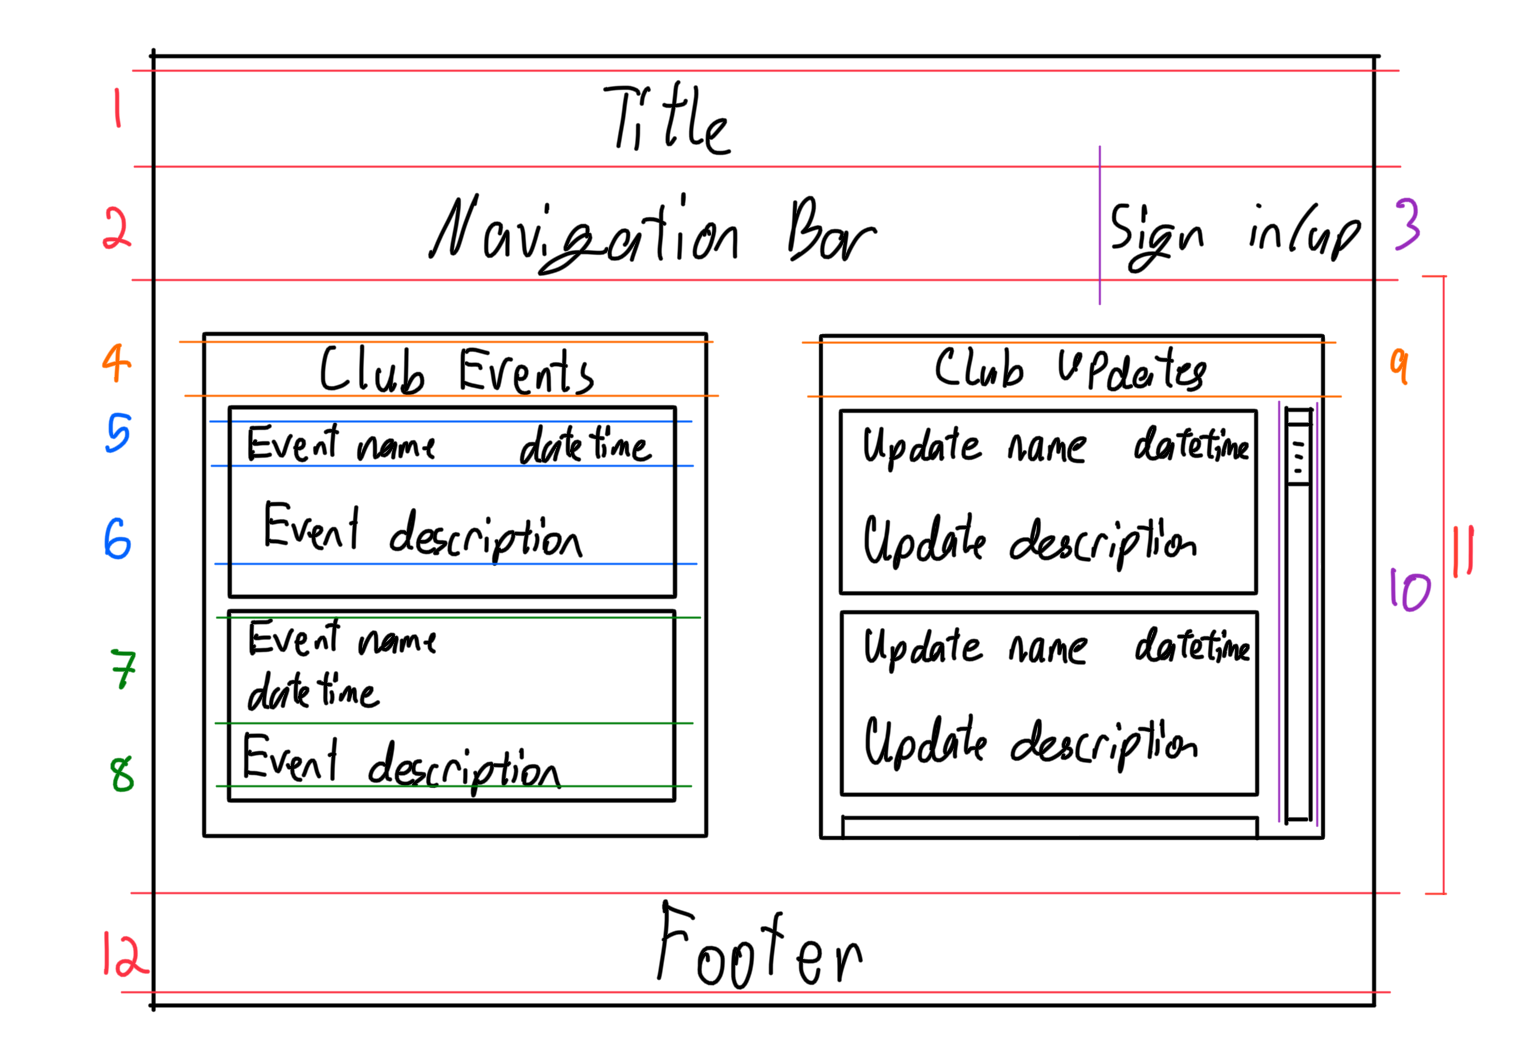 1 Title
2 Navigation Bar Sign in/up 3
4 Club Events
5 Event name datetime
6 Event description
7 Event name
datetime
8 Event description
Club Updates 9
Update name datetime
Update description
10
11
Update name datetime
Update description
12 Footer